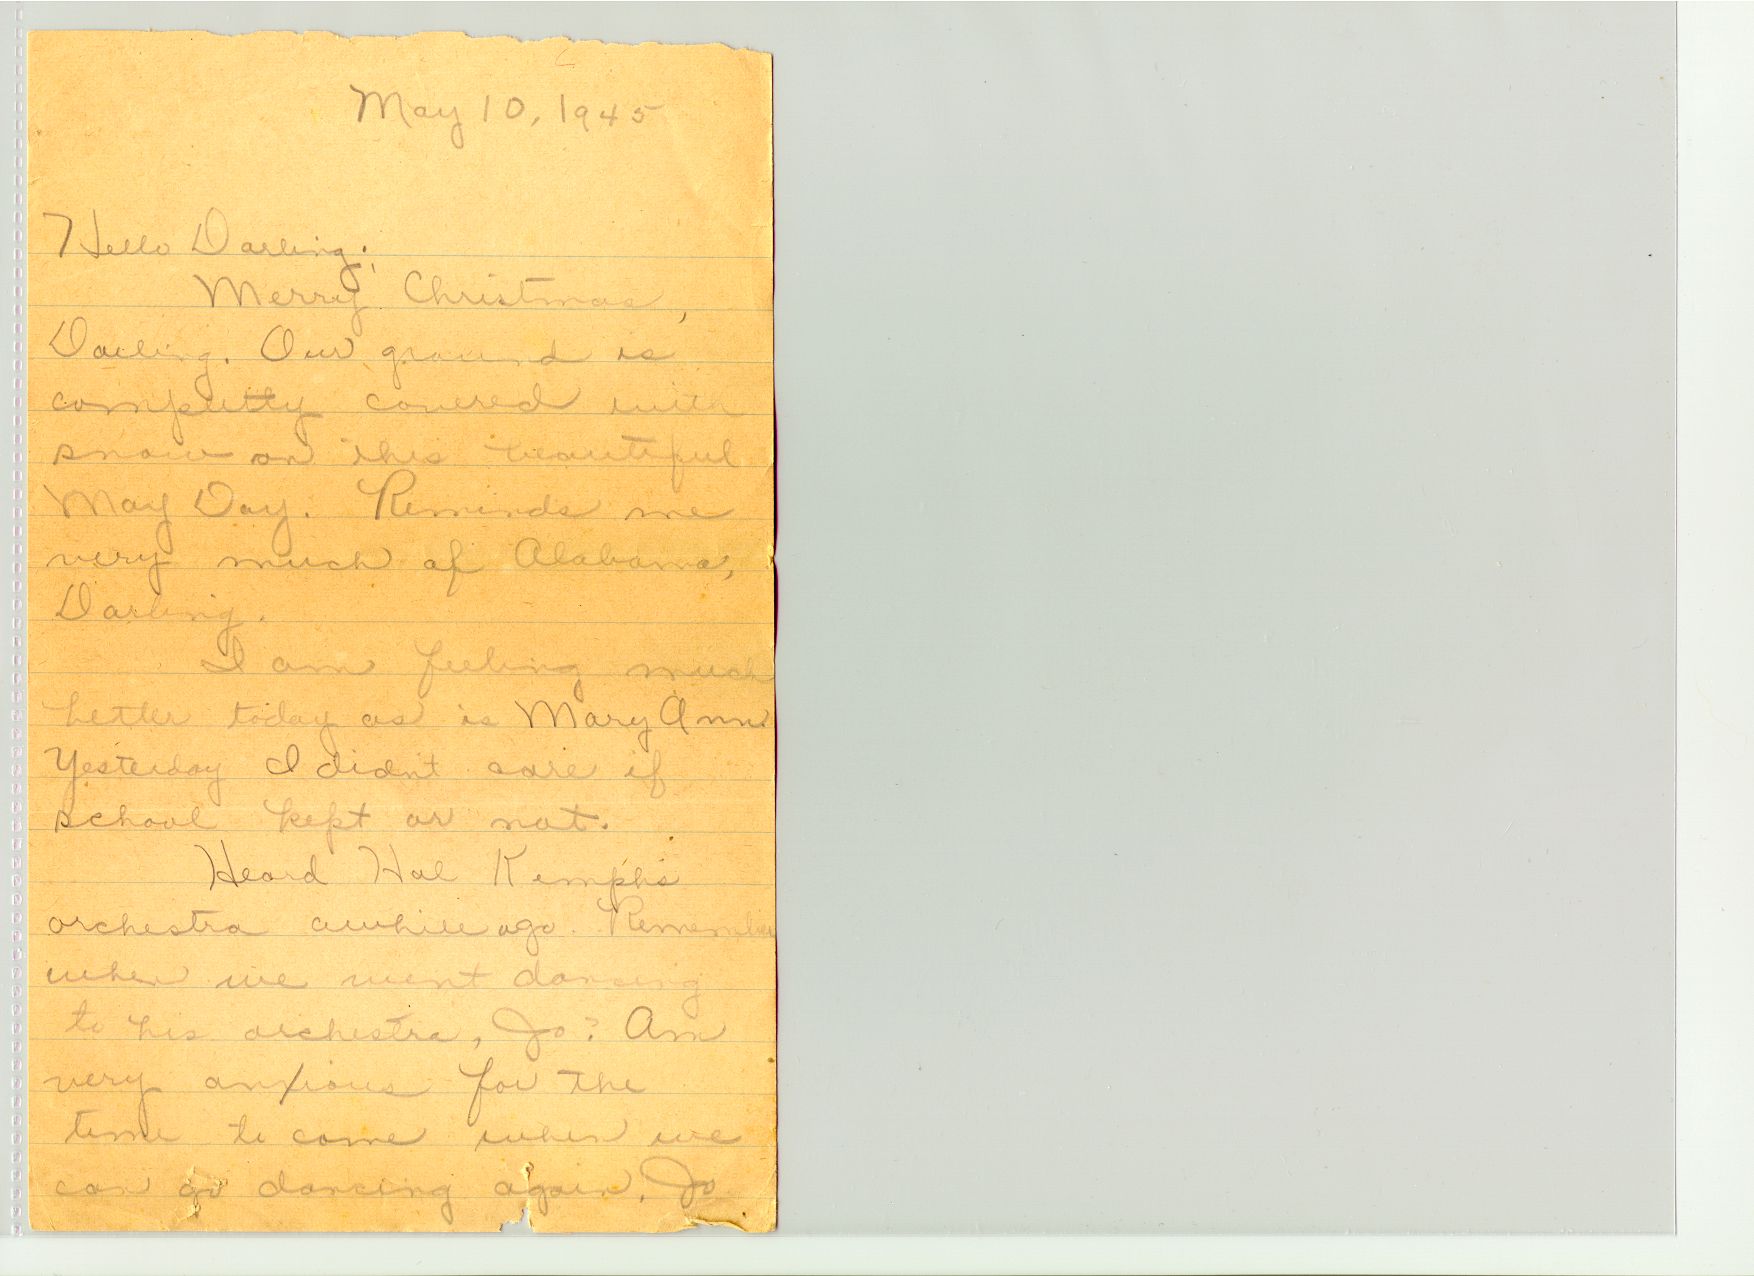 May 10, 1945
Hello Darling;
Merry Christmas,
Darling. Our ground is
completly covered with
snow on this beautiful
May Day. Reminds me
very much of Alabama,
Darling.
I am feeling much
better today as is Mary Ann.
Yesterday I didn't care if
school kept or not.
Heard Hal Kemph's
orchestra awhile ago. Remember
when we went dancing
to his orchestra, Jo? Am
very anxious for the
time to come when we
can go dancing again, Jo.